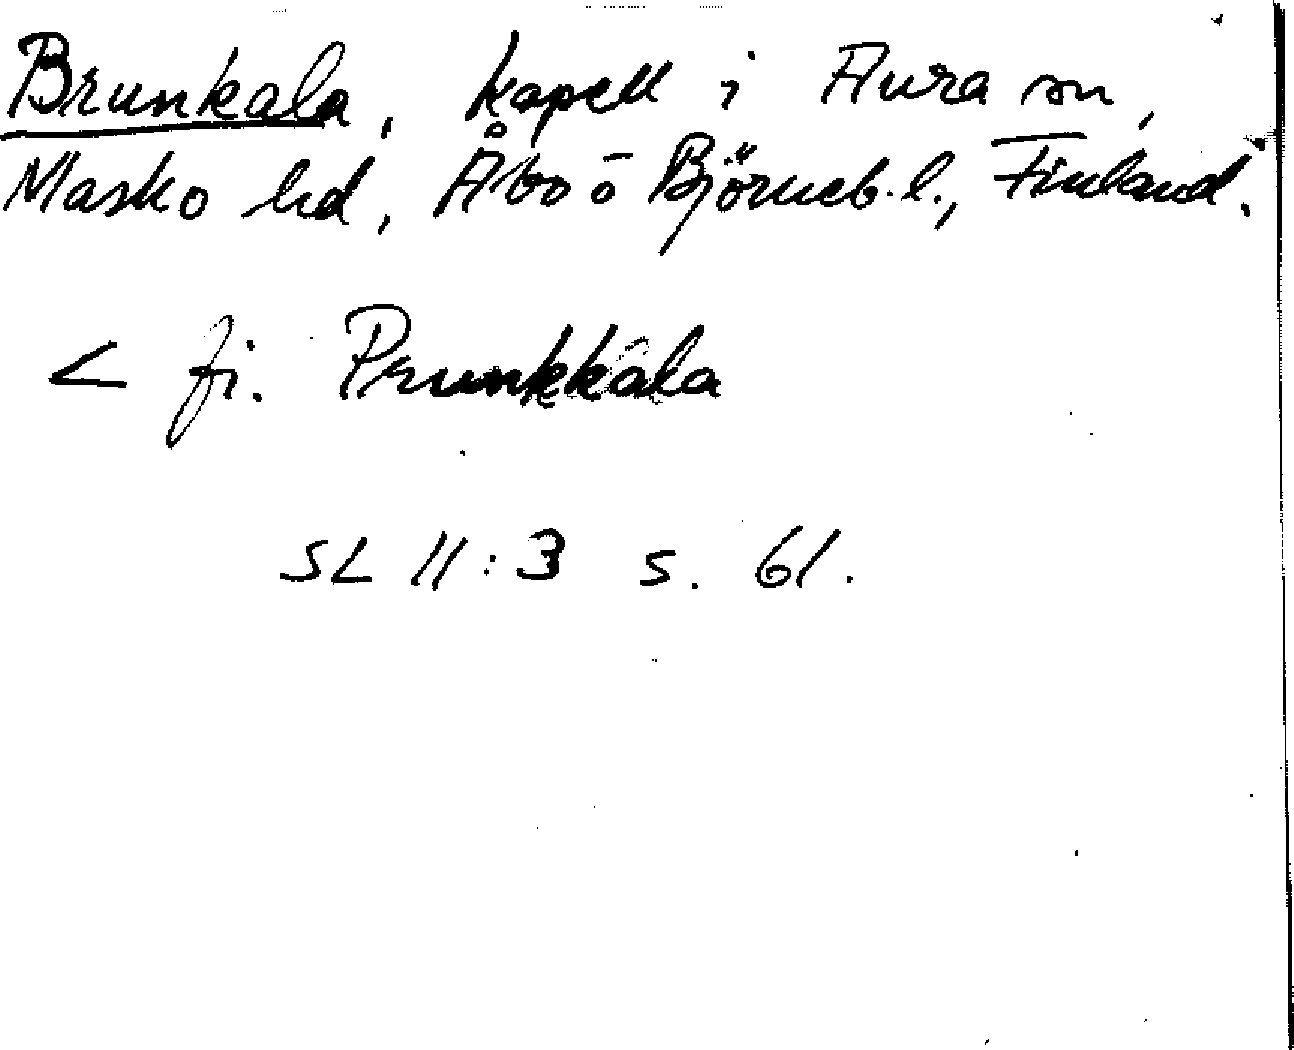 Brunkala, kapell i Aura sn,
Masko hd, Åbo o Björneb. l., Finland.
< fi. Prunkkala
SL 11:3 s. 61.